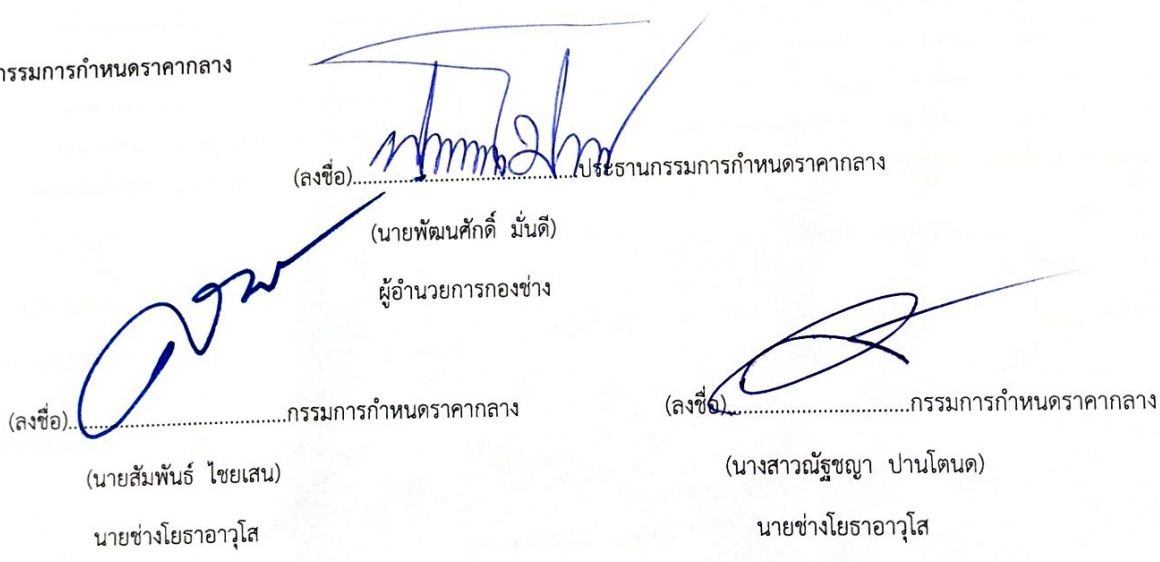 กรรมการกำหนดราคากลาง
(ลงชื่อ)........................................ประธานกรรมการกำหนดราคากลาง
(นายพัฒนศักดิ์ มั่นดี)
ผู้อำนวยการกองช่าง
(ลงชื่อ)........................................กรรมการกำหนดราคากลาง
(นายสัมพันธ์ ไชยเสน)
นายช่างโยธาอาวุโส
(ลงชื่อ)..................................กรรมการกำหนดราคากลาง
(นางสาวณัฐชญา ปานโตนด)
นายช่างโยธาอาวุโส